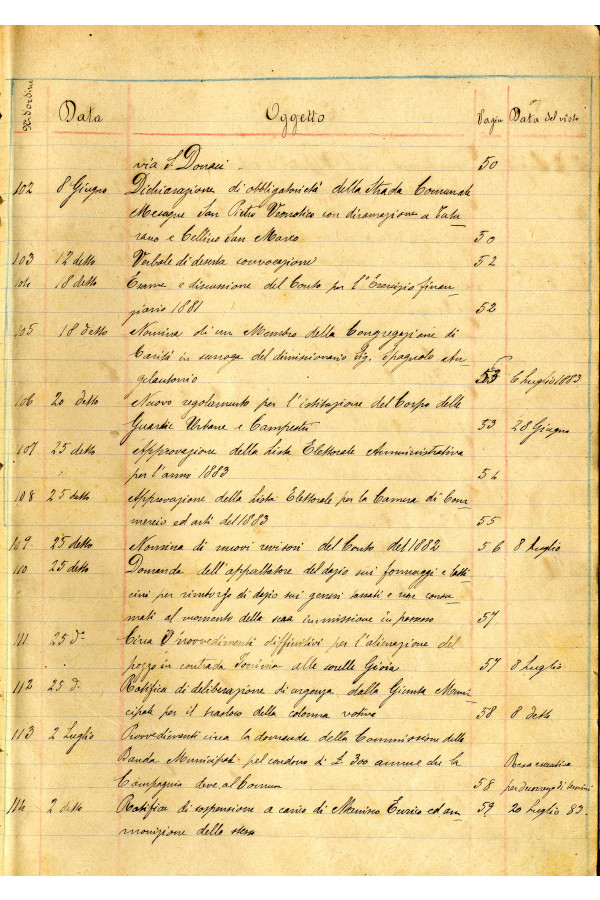 N. d'ordine Data Oggetto Pagin Data del visto
via S. Donaci 50
102 8 Giugno Dichiarazione di obbligatorietà della Strada Comunale
Mesagne San Pietro Vernotico con diramazione a Tutu-
rano e Cellino San Marco 50
103 12 detto Verbale di deserta convocazione 52
104 18 detto Esame e discussione del Conto per l'Esercizio finan-
ziario 1881 52
105 18 detto Nomina di un Membro della Congregazione di
Carità in surroga del dimissionario Sig. Spagnolo An-
gelantonio 53 6 Luglio 1883
106 20 detto Nuovo regolamento per l'istituzione del Corpo delle
Guardie Urbane e Campestri 53 28 Giugno
107 25 detto Approvazione della Lista Elettorale Amministrativa
per l'anno 1883 54
108 25 detto Approvazione della Lista Elettorale per la Camera di Com-
mercio ed arti del 1883 55
109 25 detto Nomina di nuovi revisori del Conto del 1882 56 8 Luglio
110 25 detto Domanda dell'appaltatore del dazio sui formaggi e latti-
cini per rimborso di dazio sui generi tassati e non consu-
mati al momento della sua immissione in possesso 57
111 25 do Circa Provvedimenti diffinitivi per l'alienazione del
pozzo in contrada alle sorelle Gioia 57 8 Luglio
112 25 d. Ratifica di deliberazione di urgenza dalla Giunta Muni-
cipale per il trasloco della colonna votiva 58 8 detto
113 2 Luglio Provvedimenti circa la domanda della Commissione della
Banda Municipale pel condono di £. 300 annue che la Resa esecutiva
Compagnia deve al Comune 58 per decorrenza di termini
114 2 detto Ratifica di sospensione a carico di Enrico ed am- 59 20 Luglio 83.
monizione dello stesso